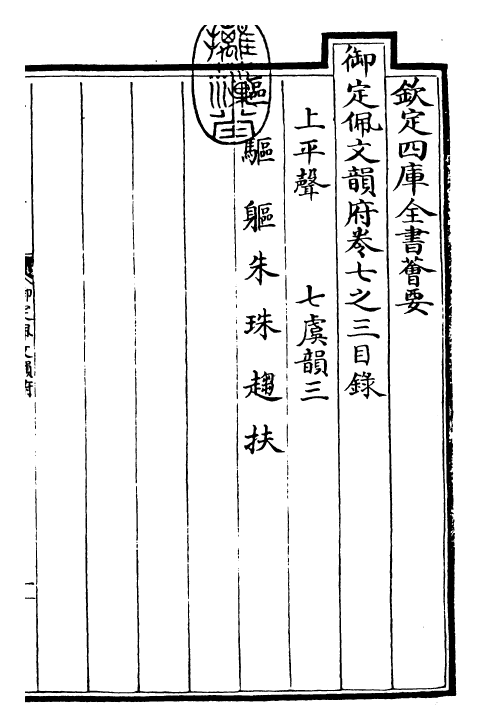 欽定四庫全書薈要
御定佩文韻府卷七之三目錄
上平聲　七虞韻三
驅　軀　朱　珠　趨　扶
御定佩文韻府